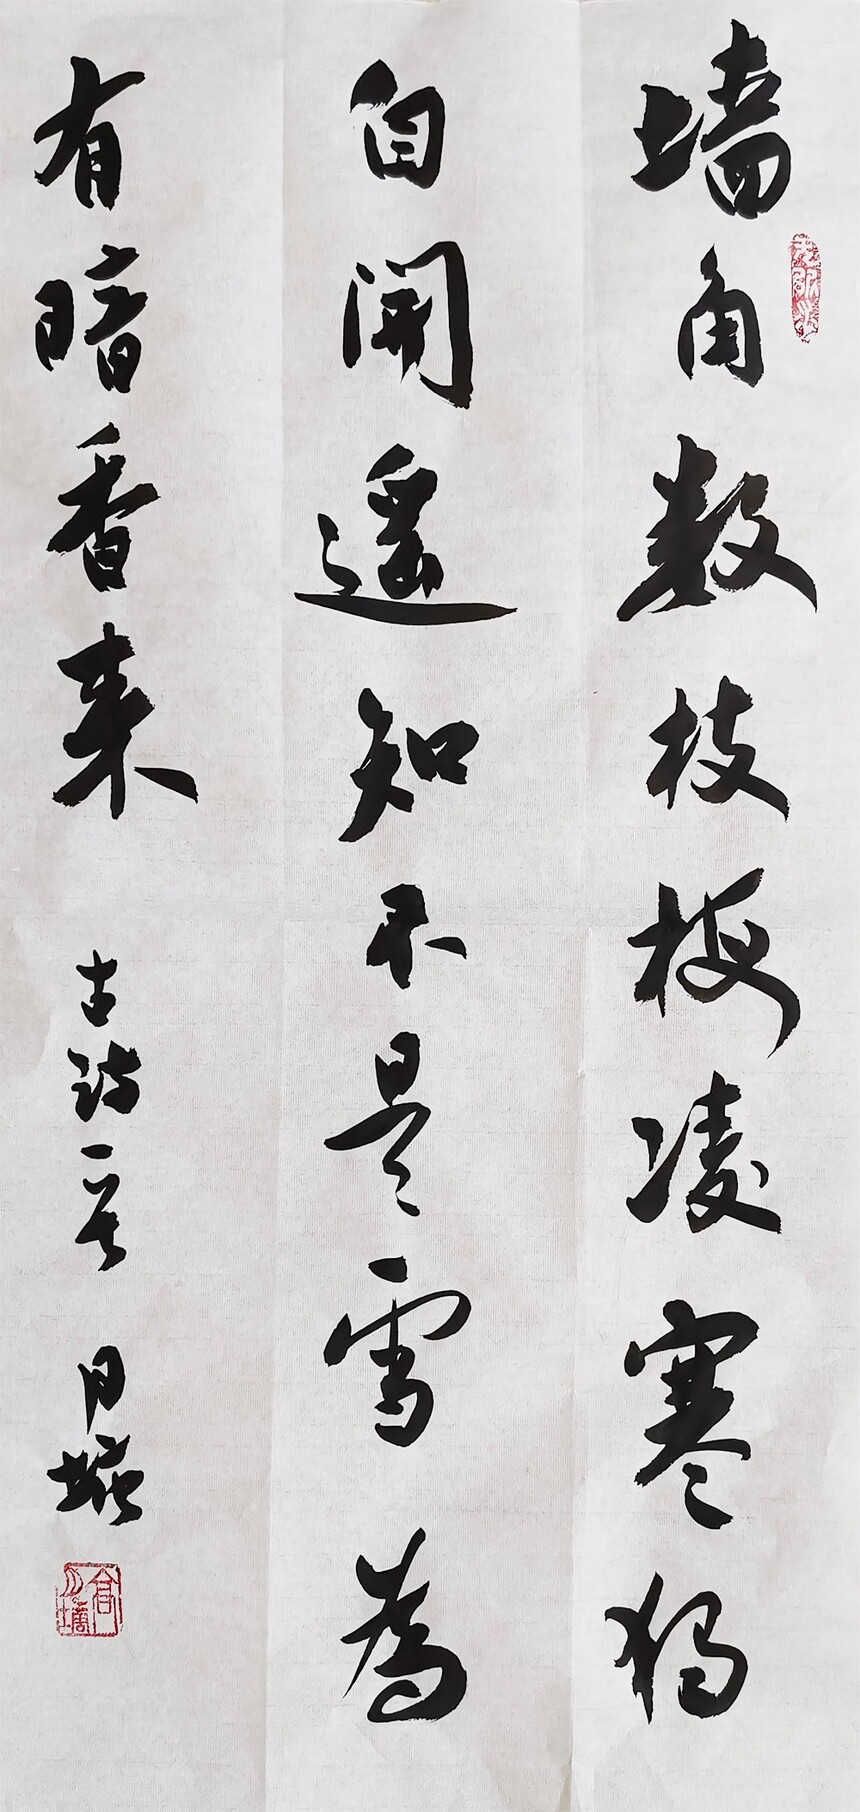 墙角数枝梅凌寒独
自開遥知不是雪為
有暗香来
古诗一首 月墉